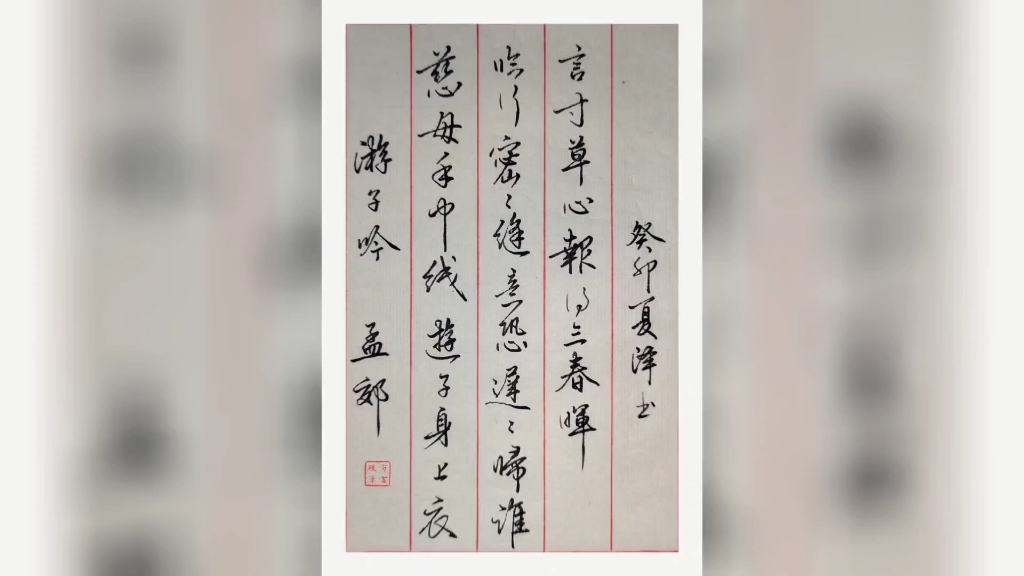 游子吟 孟郊
慈母手中线遊子身上衣
临行密〻缝意恐遲〻歸谁
言寸草心報得三春暉
癸卯夏泽书